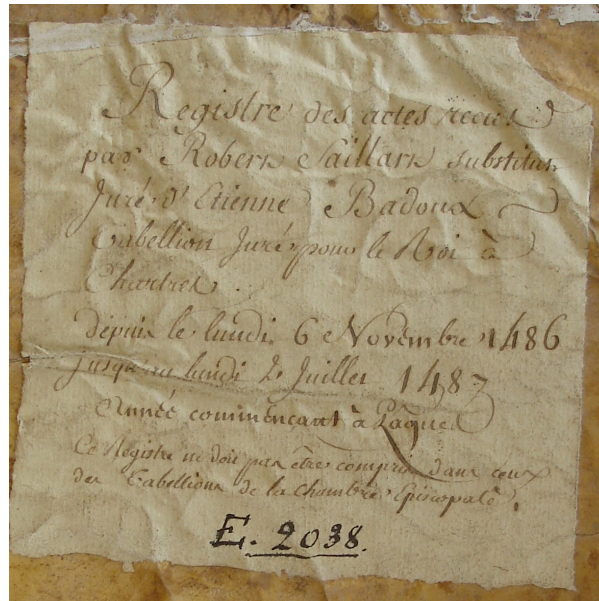 Registre des actes recus
par Robert Saillart substitut
Juré d'Etienne Badoux
Tabellion Juré pour le Roi à
Chartres.
depuis le lundi 6 Novembre 1486
jusqu'au lundi 2 Juillet 1487
Année commençant à Pâques
Ce Registre ne doit pas être compris dans ceux
des Tabellions de la Chambre Episcopale.
E. 2038.